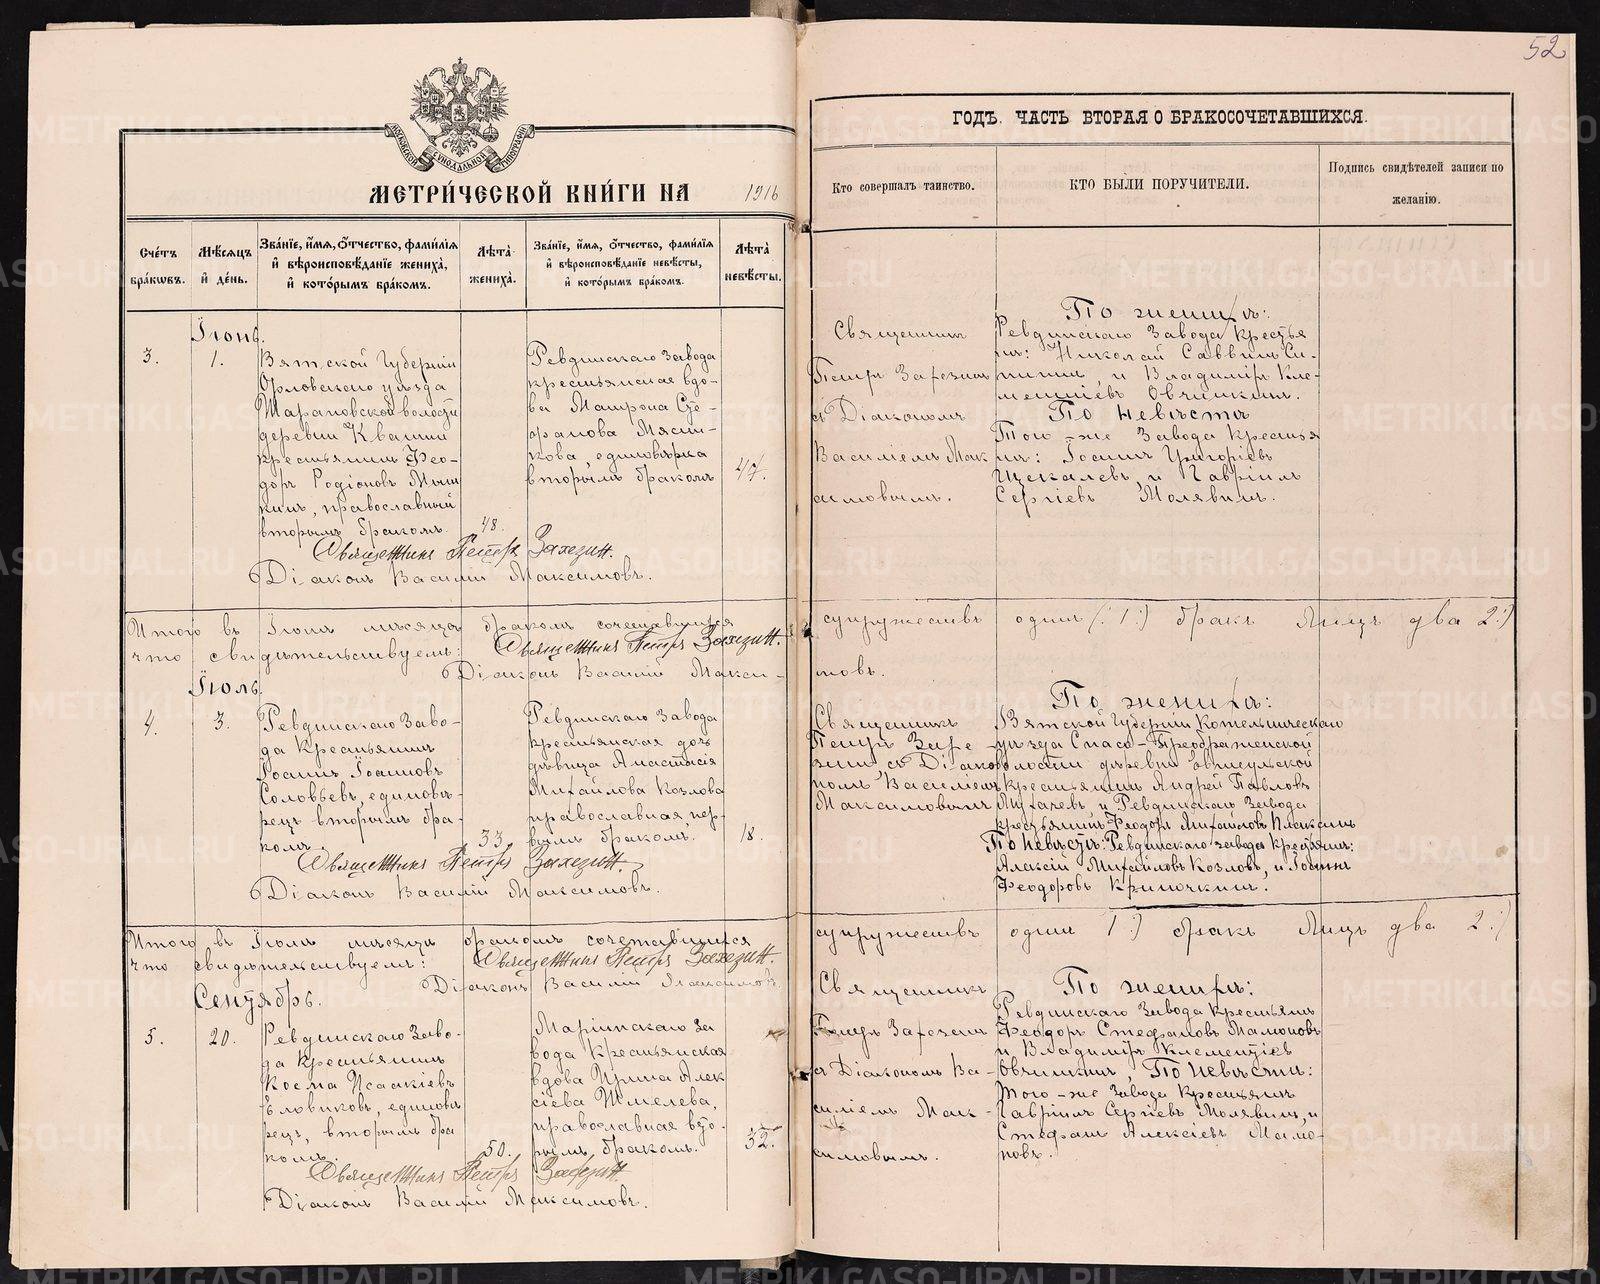 52
МОСКОВСКОЙ СѴНОДАЛЬНОЙ ТИПОГРАФІИ
МЕТРИ́ЧЕСКОЙ КНИ́ГИ НА 1916
ГОДЪ. ЧАСТЬ ВТОРАЯ О БРАКОСОЧЕТАВШИХСЯ.
Сче́тъ бра́кωвъ.
Мѣ́сяцъ и҆ де́нь.
Зва́нїе, и҆́мя, ѻ҆́тчество, фами́лїя
и҆ вѣроисповѣ́данїе жениха̀,
и҆ кото́рымъ бра́комъ.
Лѣ́та жениха̀.
Зва́нїе, и҆́мя, ѻ҆́тчество, фами́лїя
и҆ вѣроисповѣ́данїе невѣ́сты,
и҆ кото́рымъ бра́комъ.
Лѣ́та невѣ́сты.
Кто совершалъ таинство.
КТО БЫЛИ ПОРУЧИТЕЛИ.
Подпись свидѣтелей записи по
желанію.
Іюнь.
3.
1.
Вятской Губерніи
Орловскаго уѣзда
волости
деревни Квашни
крестьянинъ Ѳео-
доръ Родіоновъ
православный
вторымъ бракомъ.
48.
Ревдинскаго Завода
крестьянская вдо-
ва Матрона Сте-
фанова Мясни-
кова, единовѣрка
вторымъ бракомъ
47.
Священникъ
Петръ
съ Діакономъ
Василіемъ Мак
симовымъ.
По женихѣ:
Ревдинскаго Завода Крестья
не: Николай Саввинъ Си-
и Владиміръ Кле-
ментіевъ Овчинкинъ.
По невѣстѣ
Того-же Завода Крестья
не: Іоаннъ Григоріевъ
Щекалевъ, и Гавріилъ
Сергіевъ Молявинъ.
Священникъ Петръ
Діаконъ Василій Максимовъ.
Итого въ Іюнѣ мѣсяцѣ бракомъ сочетавшихся
супружествъ одинъ (:1:) бракъ Лицъ два 2:)
что свидѣтельствуемъ: Священникъ Петръ
Діаконъ Василій Макси-
мовъ.
Іюль
4.
3.
Ревдинскаго Заво-
да Крестьянинъ
Іоаннъ Іоанновъ
Соловьевъ, единовѣ-
рецъ вторымъ бра-
комъ.
33.
Ревдинскаго Завода
крестьянская дочь
дѣвица Анастасія
Михайлова Козлова
православная пер-
вымъ бракомъ.
18.
Священникъ
Петръ
съ Діако
номъ Василіемъ
Максимовымъ
По женихѣ:
Вятской Губерніи Котельническаго
уѣзда Спасо-Преображенской
волости деревни
крестьянинъ Андрей Павловъ
и Ревдинскаго Завода
крестьянинъ Ѳеодоръ Михайловъ
По невѣстѣ: Ревдинскаго завода крестьяне:
Алексій Михайловъ Козловъ, и Іоаннъ
Ѳеодоровъ Криночкинъ.
Священникъ Петръ
Діаконъ Василій Максимовъ.
Итого въ Іюлѣ мѣсяцѣ бракомъ сочетавшихся
супружествъ одинъ 1:) бракъ Лицъ два 2:)
что свидѣтельствуемъ: Священникъ Петръ
Діаконъ Василій Максимовъ.
Сентябрь.
5.
20.
Ревдинскаго Заво-
да крестьянинъ
Косма Исаакіевъ
Еловиковъ, единовѣ
рецъ, вторымъ бра
комъ.
50.
Маріинскаго За
вода Крестьянская
вдова Ирина Алек
сіева Шмелева,
православная вто-
рымъ бракомъ.
52.
Священникъ
Петръ
съ Діакономъ Ва-
силіемъ Мак-
симовымъ.
По женихѣ:
Ревдинскаго Завода Крестьяне
Ѳеодоръ Стефановъ Мамоновъ
и Владиміръ Клементіевъ
Овчинкинъ, По невѣстѣ:
того-же Завода Крестьяне
Гавріилъ Сергіевъ Молявинъ, и
Стефанъ Алексіевъ Мамо-
новъ.
Священникъ Петръ
Діаконъ Василій Максимовъ.
METRIKI.GASO-URAL.RU